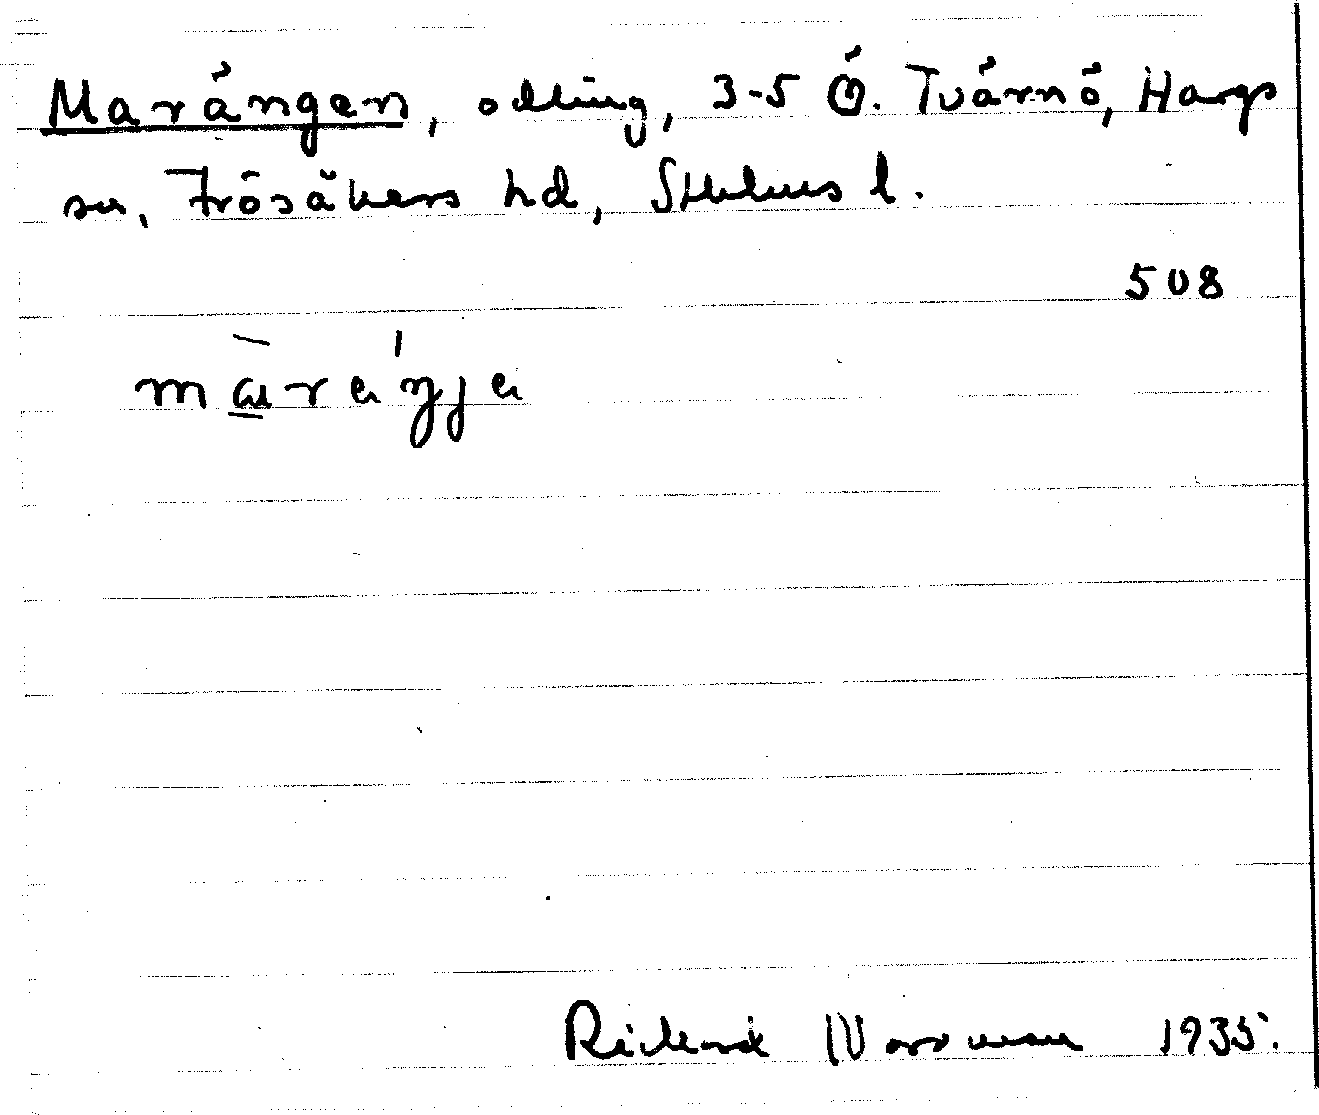 Marängen, odling, 3-5 Ö. Tvärnö, Hargs
sn, Frösåkers hd, Sthlms l.
508
Rickard Norrman 1935.